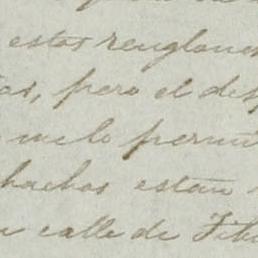 estos renglones
as, pero el des
me lo permi
chachos están
calle de Tibu